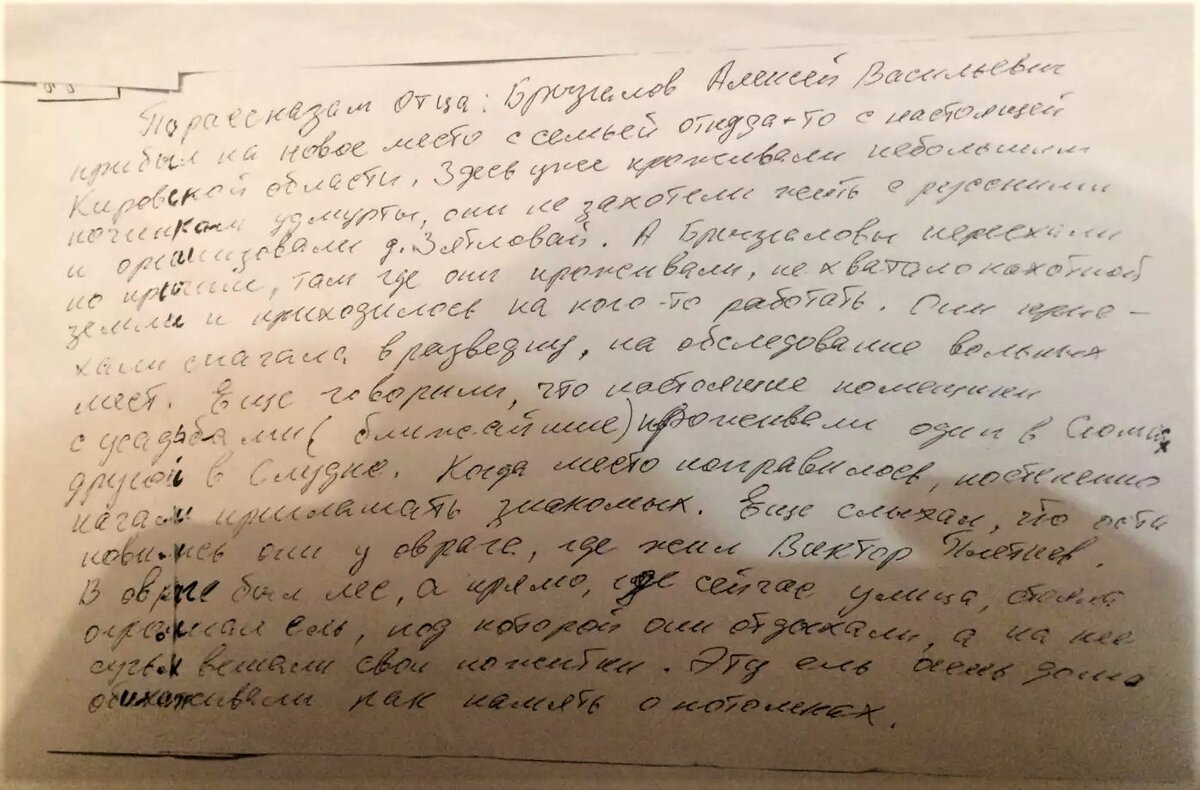 По рассказам отца: Брызгалов Алексей Васильевич
прибыл на новое место с семьей откуда-то с настоящей
Кировской области. Здесь уже проживали небольшим
починком удмурты, они не захотели жить с русскими
и организовали д. Зятловай. А Брызгаловы переехали
по причине, там где они проживали, не хватало пахотной
земли и приходилось на кого-то работать. Они прие-
хали сначала в разведку, на обследование вольных
мест. Еще говорили, что настоящие помещики
с усадьбами (ближайшие) проживали один в Сюмсях
другой в Слудке. Когда место понравилось, постепенно
начали приглашать знакомых. Еще слыхал, что оста
новились они у оврага, где жил Виктор Плетнев.
В овраге был лес, а прямо, где сейчас улица, стояла
огромная ель, под которой они отдыхали, а на нее
сучья вешали свои пожитки. Эту ель очень долго
обихаживали как память о потомках.